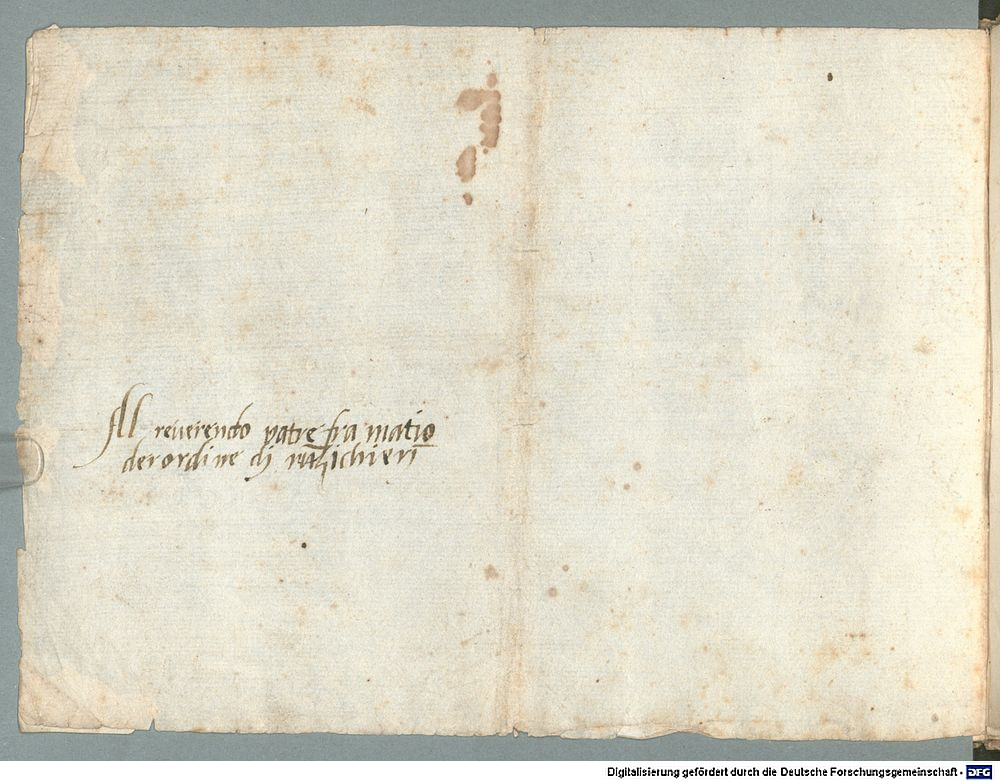 Al reuerendo patre fra matio
der ordine di
Digitalisierung gefördert durch die Deutsche Forschungsgemeinschaft - DFG